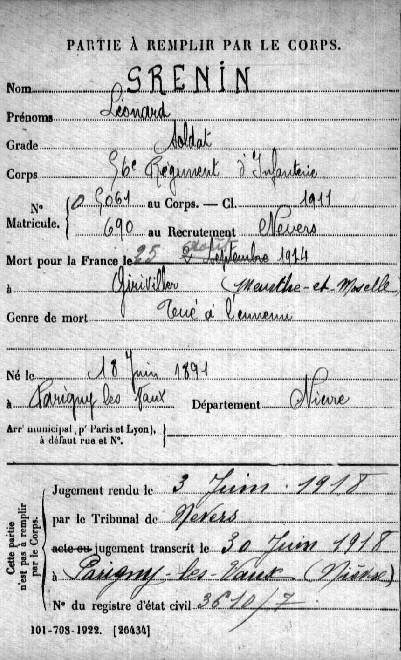 PARTIE À REMPLIR PAR LE CORPS.
Nom GRENIN
Prénoms Léonard
Grade Soldat
Corps 56e Régiment d'Infanterie
N° Matricule. { 0 5061 au Corps. — Cl. 1911
690 au Recrutement Nevers
Mort pour la France le 25 août Septembre 1914
à Giriviller (Meurthe-et-Moselle)
Genre de mort Tué à l'ennemi
Né le 18 Juin 1891
à Parigny les Vaux Département Nièvre
Arr¹ municipal (p¹ Paris et Lyon),
à défaut rue et N°.
Cette partie n'est pas à remplir par le Corps.
Jugement rendu le 3 Juin 1918
par le Tribunal de Nevers
acte ou jugement transcrit le 30 Juin 1918
à Parigny-les-Vaux (Nièvre)
N° du registre d'état civil 3610/7
101-708-1922. [26434]